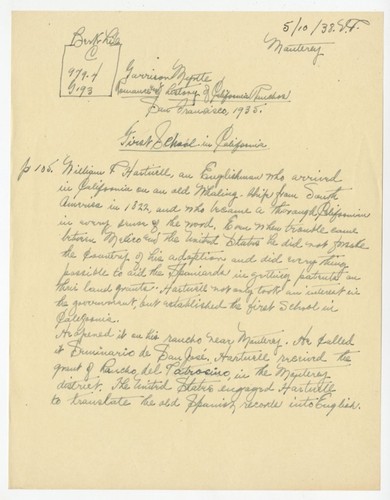 5/10/38. V.P.
Monterey
Berk. Library
C
979.4
G193
Garrison Myrtle
Romance & history of California Ranchos
San Francisco, 1935.
First School in California
p 105. William P. Hartnell, an Englishman who arrived
in California on an old Whaling-ship from South
America in 1822, and who became a thorough Californian
in every sense of the word. Even when trouble came
between Mexico and the United States he did not forsake
the country of his adoptions and did everything
possible to aid the Spaniards in getting patents on
their land grants. Hartnell not only took an interest in
the government, but established the first School in
California.
He opened it on his rancho near Monterey. He called
it Seminario de San José. Hartnell received the
grant of Rancho, del Patrocino, in the Monterey
district. The United States engaged Hartnell
to translate the old Spanish records into English.